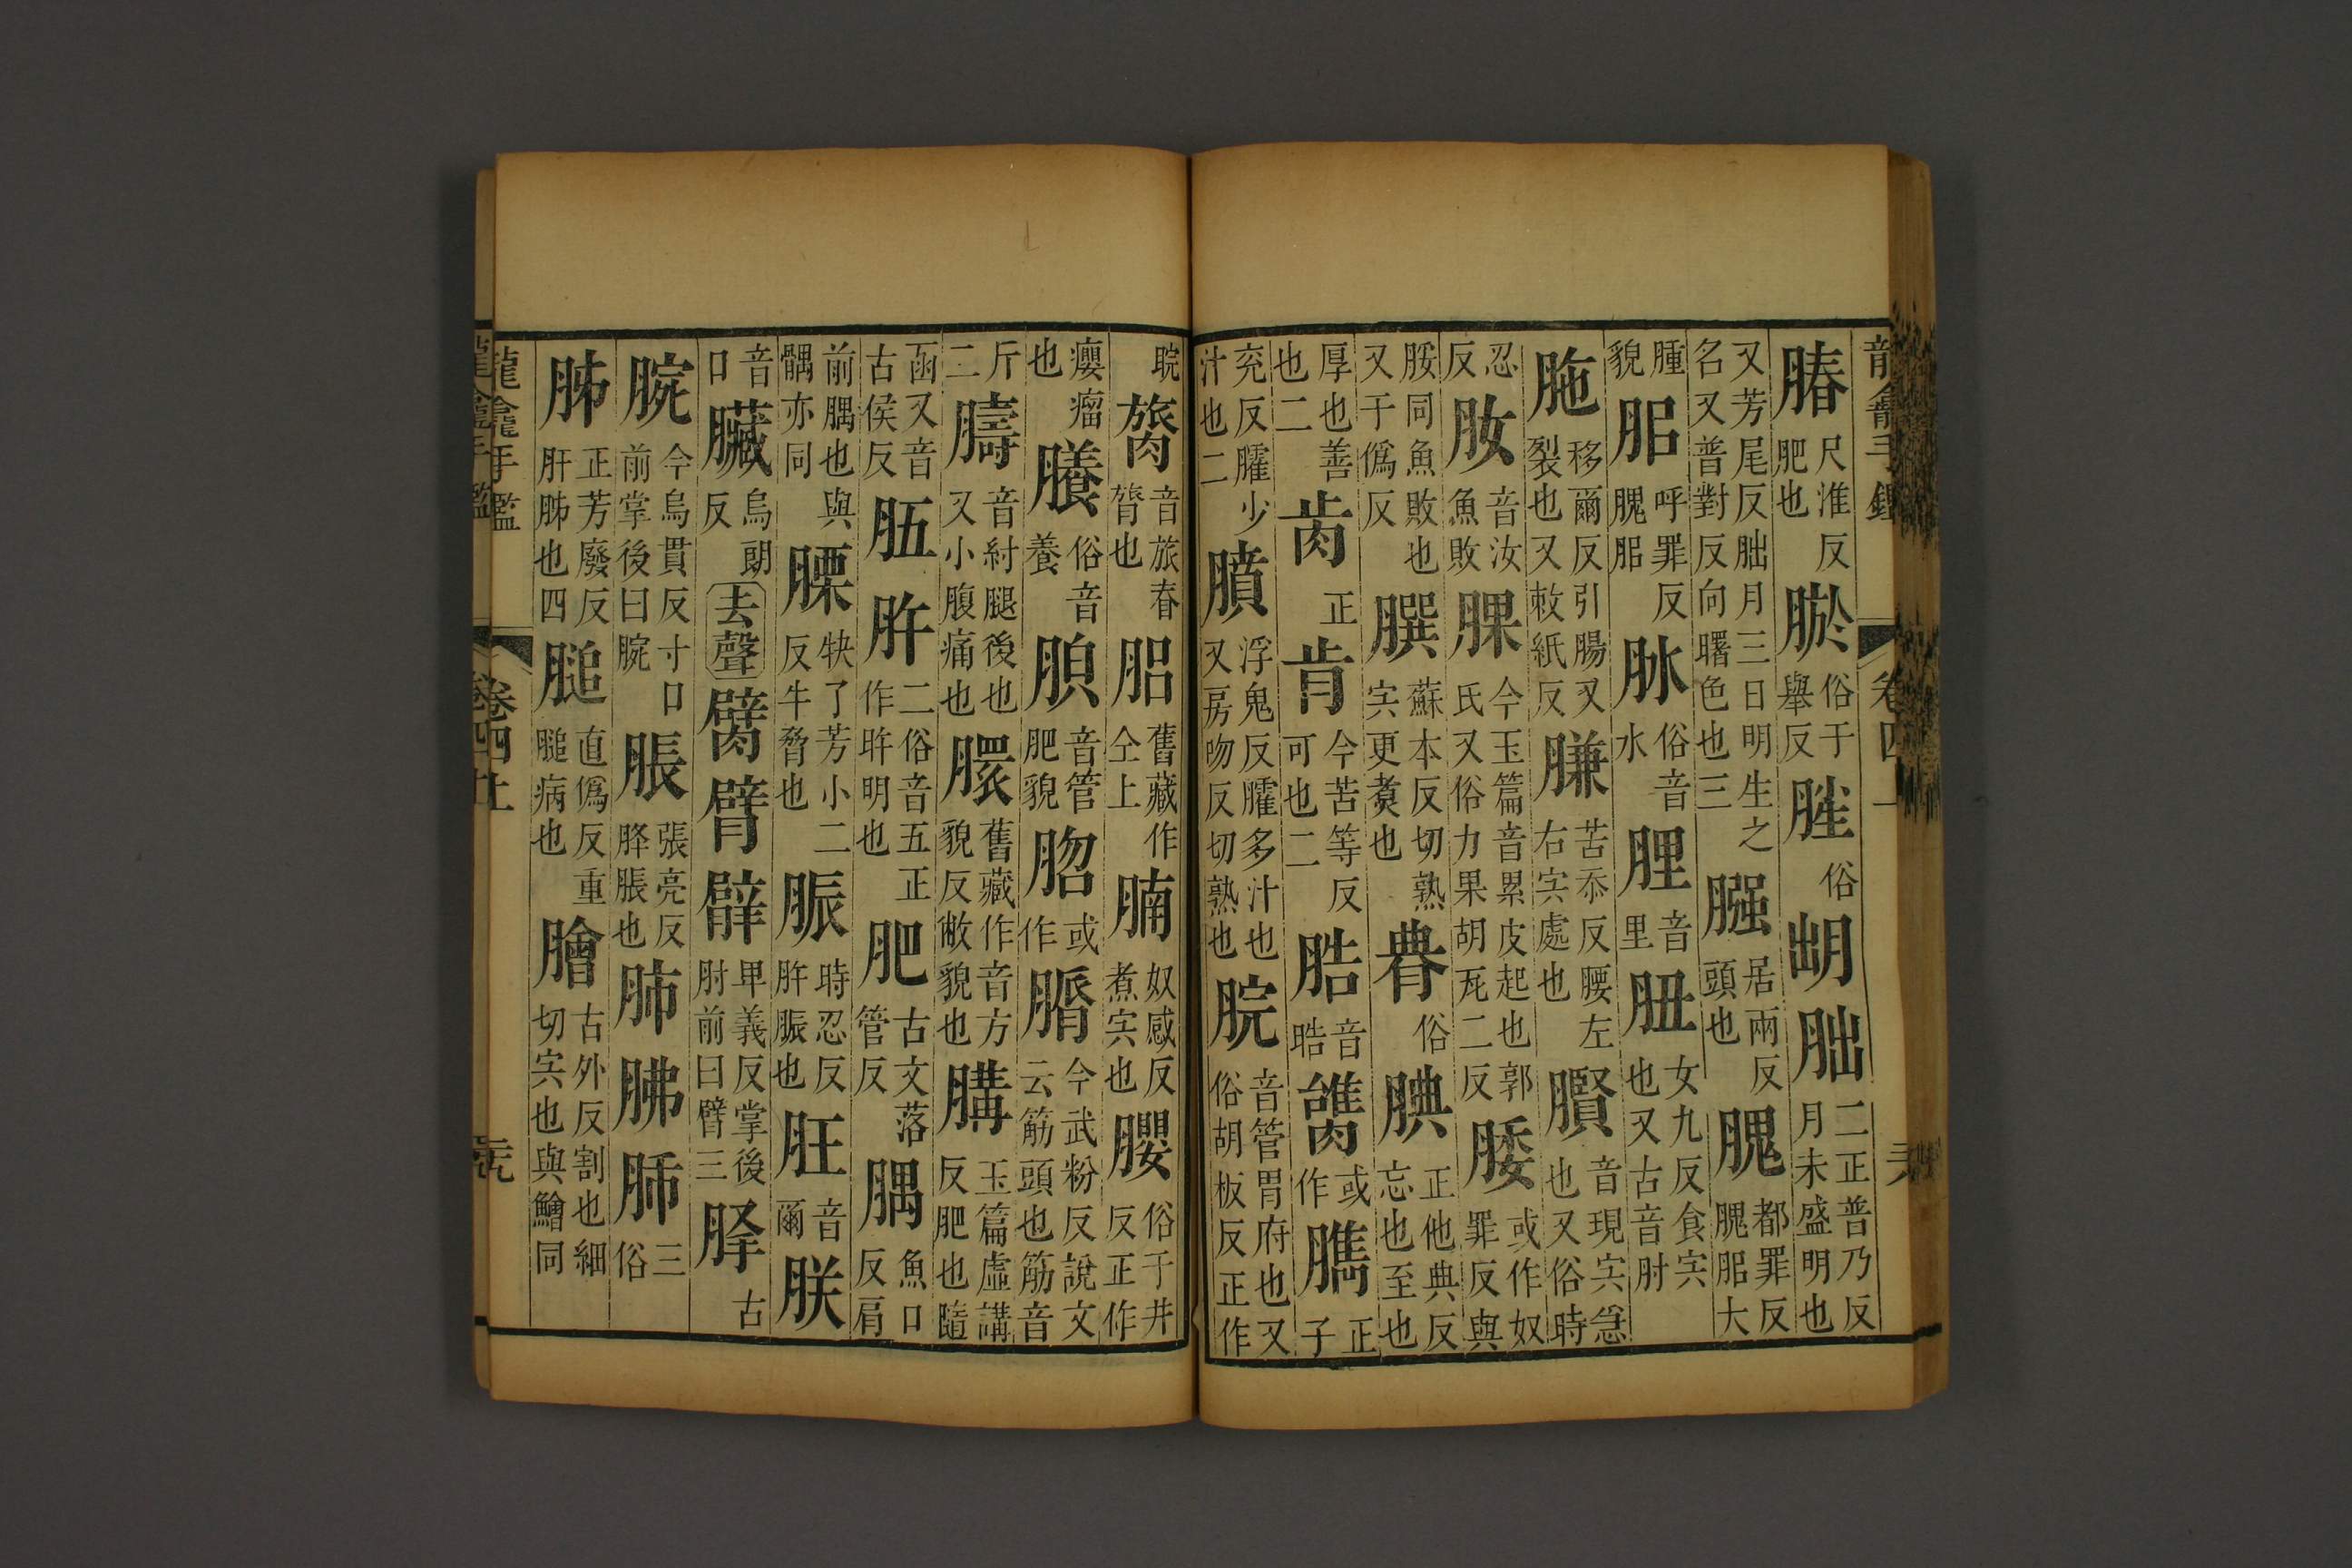 龍龕手鑑 卷四上
膥尺准反肥也 瘀俗于舉反 𦜚俗 朏朏二正普乃反月未盛明也
又芳尾反朏月三日明生之名又普對反向曙色也三 膙居兩反頭也 腲都罪反腲脜大
腫貌 脜呼罪反腲脜 脉俗音水 脭音里 肚女九反食宍也又古音肘
胣移爾反引腸又裂也又敕紙反 膁苦忝反腰左右宍處也 臔音現宍急也又俗時
忍反 肗音汝魚敗 腂今玉篇音累皮起也郭氏又俗力果胡瓦二反 腇或作奴罪反與
脮同魚敗也又于僞反 膞蘇本反切熟宍更煑也 朞俗 腆正他典反忘也至也
厚也善也二 肯正 肯今苦等反可也二 晧音晧 臇或作 臇正子
兖反臛少汁也二 膹浮鬼反臛多汁也又房吻反切熟也 脘音管胃府也又俗胡板反正作
睆 膂音旅脊膂也 䏽舊藏作仝上 腩奴感反煮宍也 䑍俗于井反正作
癭瘤也 䑆俗音養 䐁音管肥貌 脗或作 䐇今武粉反說文云筋頭也筋音
斤二 䐗音紂腿後也又小腹痛也 䐙舊藏作音方貌反敝貌也 䐟玉篇虛講反肥也隨
函又音古侯反 䏸䏭二俗音五正作旿明也 肥古文落管反 髃魚口反肩
前髃也與髃亦同 膘𤘽了芳小二反牛脅也 脤時忍反肨脤也 䏣音爾 朕
音口 臟烏朗反 去聲 臂臂臂𤰞義反掌後肘前曰臂三 胮古
腕今烏貫反寸口前掌後曰腕 脹張亮反胮脹也 肺胇肺三俗
肺正芳廢反肝肺也四 膇直僞反重膇病也 膾古外反割也細切宍也與鱠同
龍龕手鑑 卷四上 元